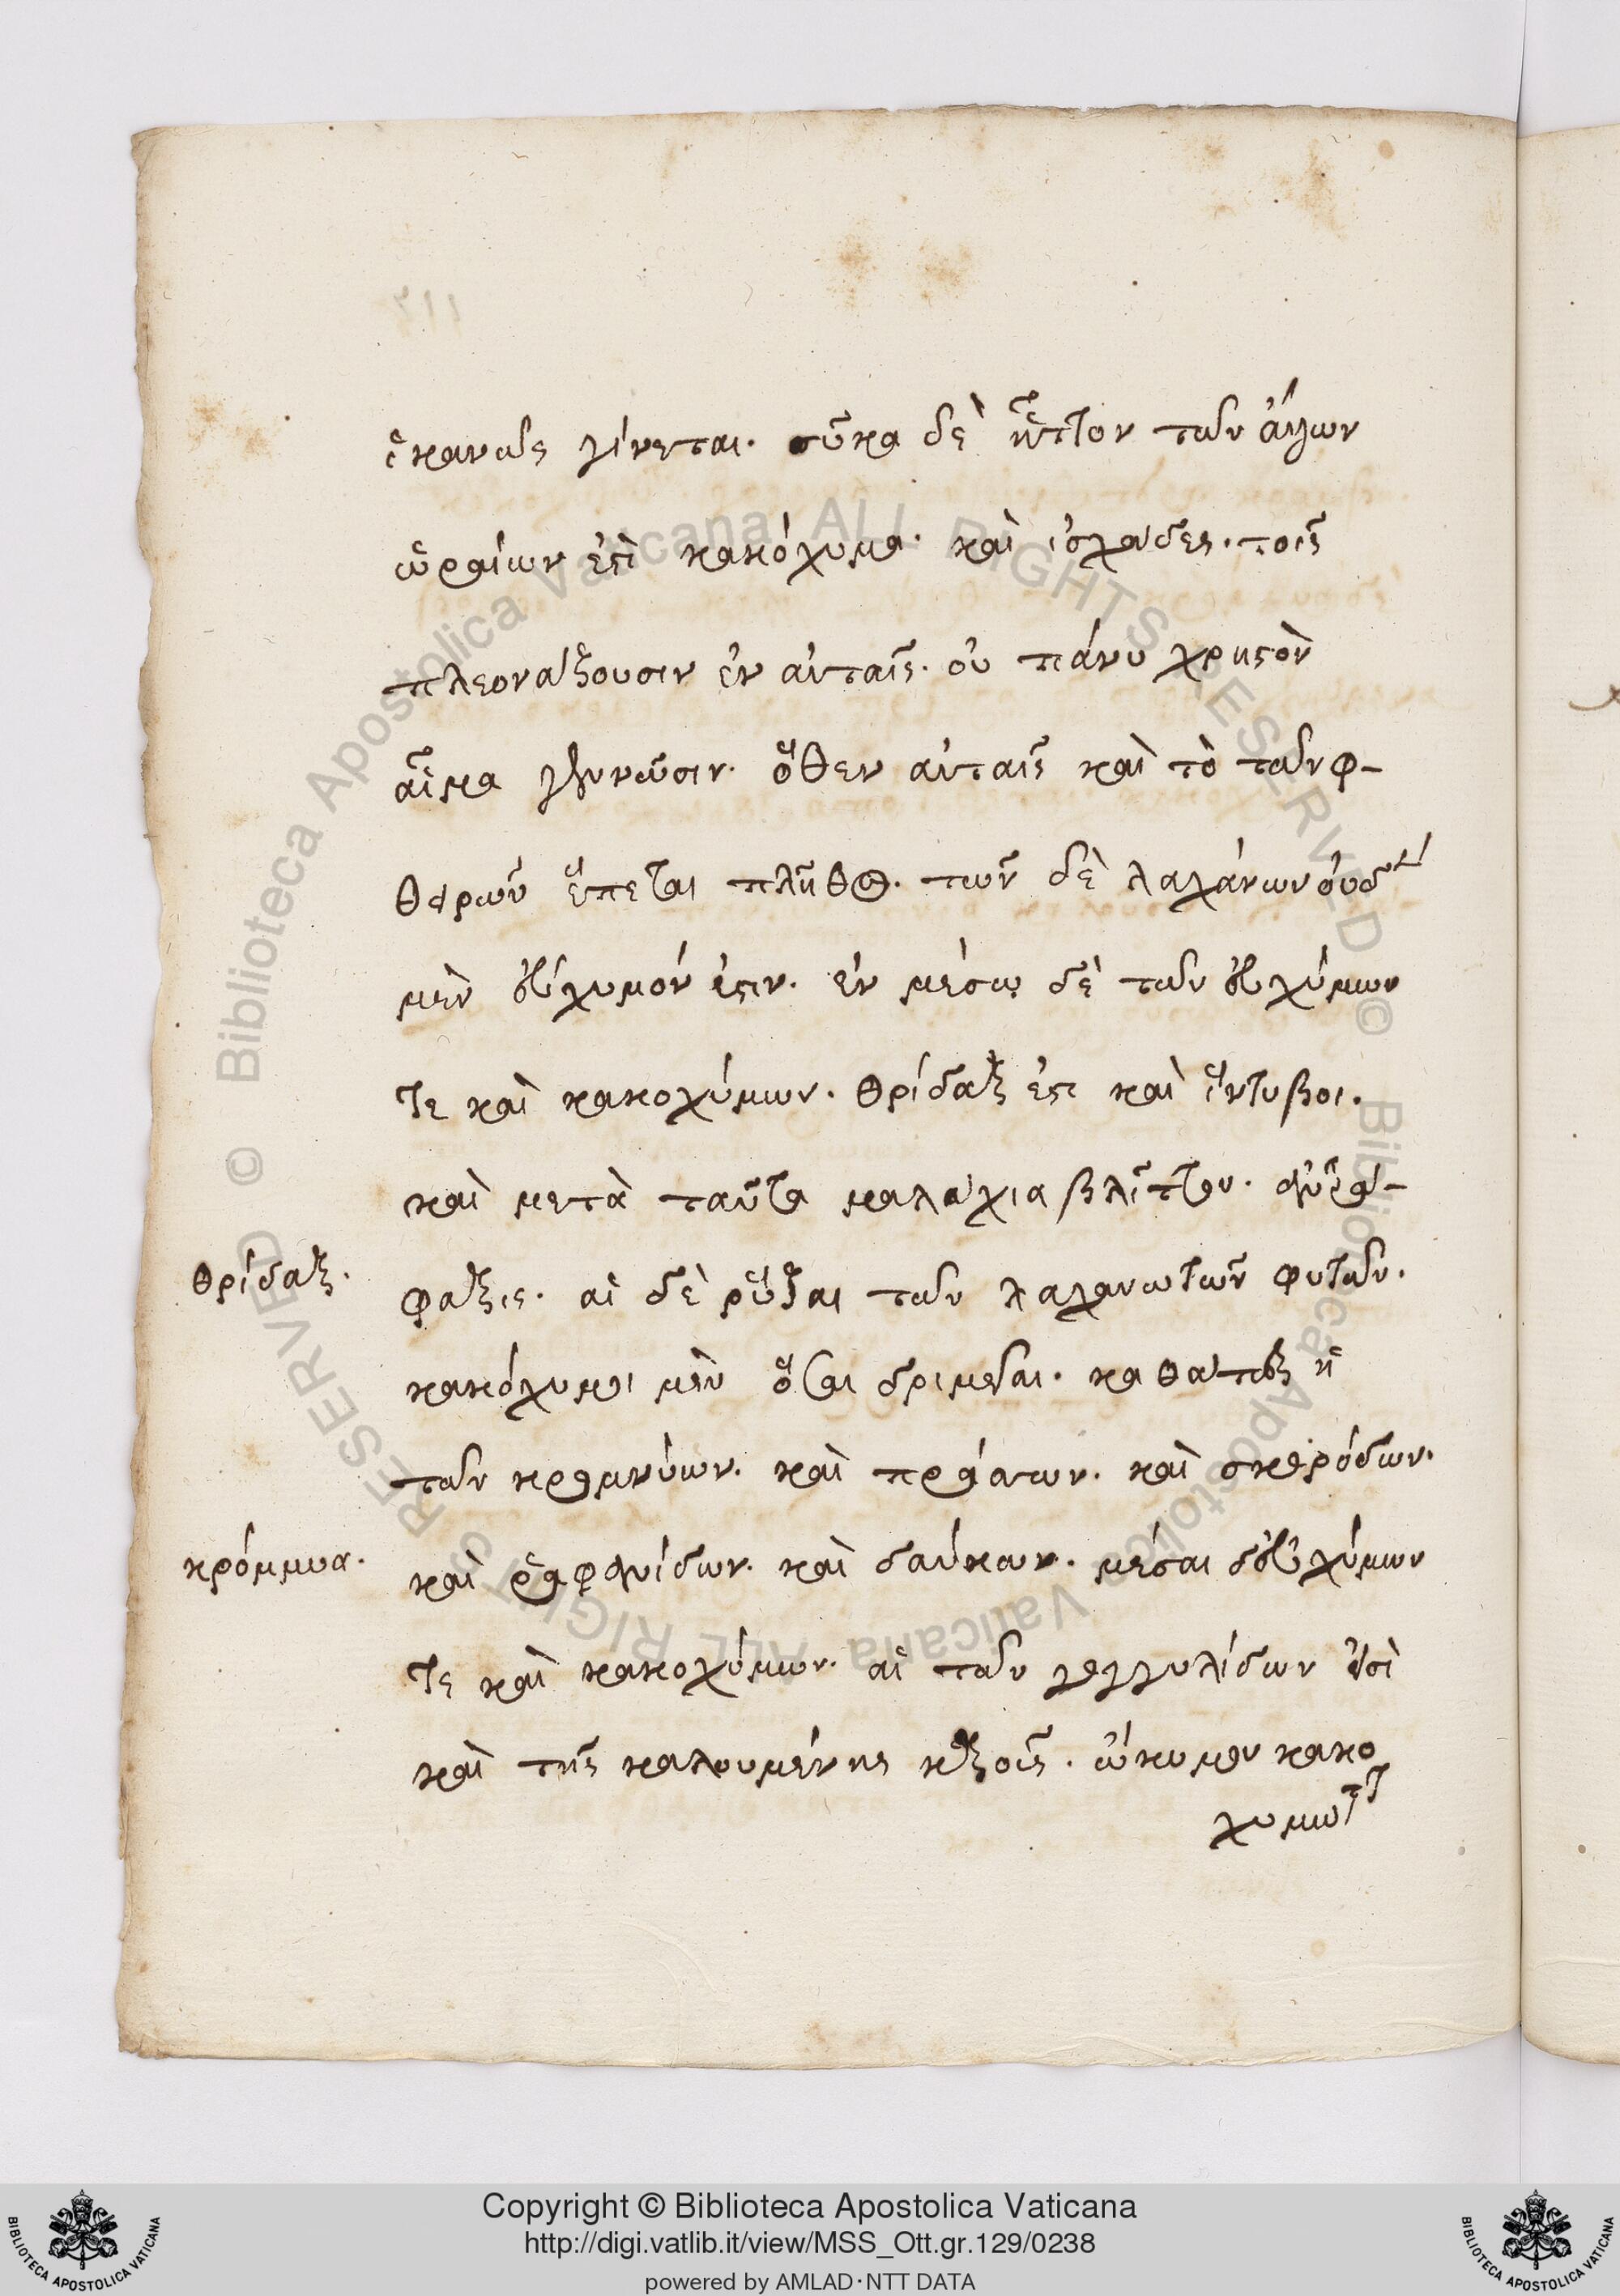 ἱκανῶς γίνεται. σῦκα δὲ ἧττον τῶν ἄλλων
ὡραίων ἐστὶ κακόχυμα. καὶ ἰσχάδες. τοῖς
πλεονάζουσιν ἐν αὐταῖς. οὐ πάνυ χρηστὸν
αἷμα γεννῶσιν. ὅθεν αὐταῖς καὶ τὸ τῶν φ-
θειρῶν ἕπεται πλῆθος. τῶν δὲ λαχάνων οὐδὲν
μὲν εὔχυμόν ἐστιν. ἐν μέσῳ δὲ τῶν εὐχύμων
τε καὶ κακοχύμων. θρίδαξ ἐστι καὶ ἔντυβοι.
καὶ μετὰ ταῦτα μαλάχια βλῖττον.
φαξις. αἱ δὲ ῥίζαι τῶν λαχανωτῶν φυτῶν.
κακόχυμοι μὲν ὅσαι δριμεῖαι. καθάπερ ἡ
τῶν κρομμύων. καὶ πράσων. καὶ σκορόδων.
καὶ ῥαφανίδων. καὶ δαύκων. μέσαι δ' εὐχύμων
τε καὶ κακοχύμων. αἱ τῶν γογγυλίδων εἰσὶ
καὶ τῆς καλουμένης. ὤκιμον κακο
χυμώτ
θρίδαξ.
κρόμμυα.
Copyright © Biblioteca Apostolica Vaticana
http://digi.vatlib.it/view/MSS_Ott.gr.129/0238
powered by AMLAD·NTT DATA
© Biblioteca Apostolica Vaticana ALL RIGHTS RESERVED
© Biblioteca Apostolica Vaticana ALL RIGHTS RESERVED
BIBLIOTECA APOSTOLICA VATICANA
BIBLIOTECA APOSTOLICA VATICANA